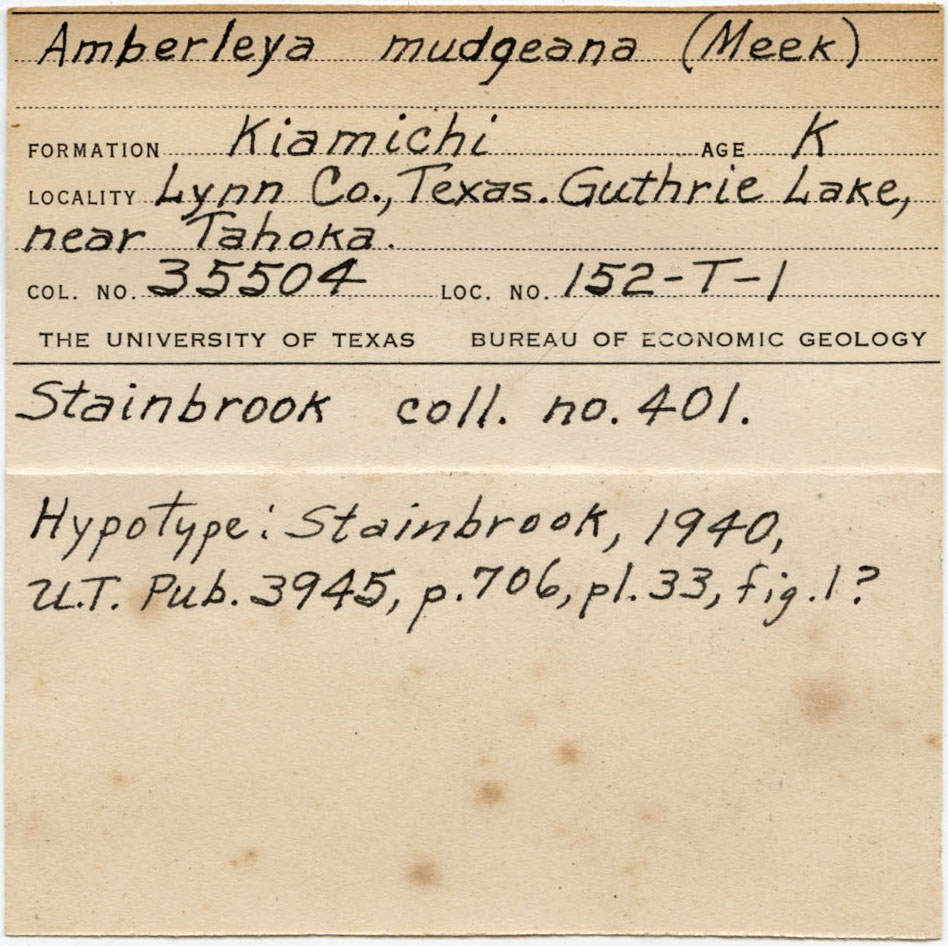 Amberleya mudgeana (Meek)
FORMATION Kiamichi AGE K
LOCALITY Lynn Co., Texas. Guthrie Lake,
near Tahoka.
COL. NO. 35504 LOC. NO. 152-T-1
THE UNIVERSITY OF TEXAS BUREAU OF ECONOMIC GEOLOGY
Stainbrook coll. no. 401.
Hypotype: Stainbrook, 1940,
U.T. Pub. 3945, p. 706, pl. 33, fig. 1?